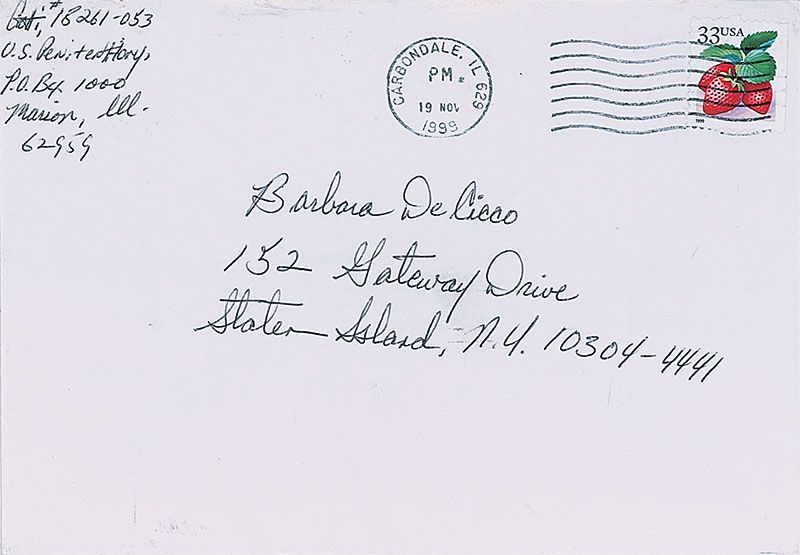 Goti, # 18261-053
U.S. Penitentiary,
P.O. Bx. 1000
Marion, Ill.
62959
CARBONDALE, IL 629
PM
19 NOV
1999
33USA
1999
Barbara DeCicco
152 Gateway Drive
Staten Island, N.Y. 10304-4441